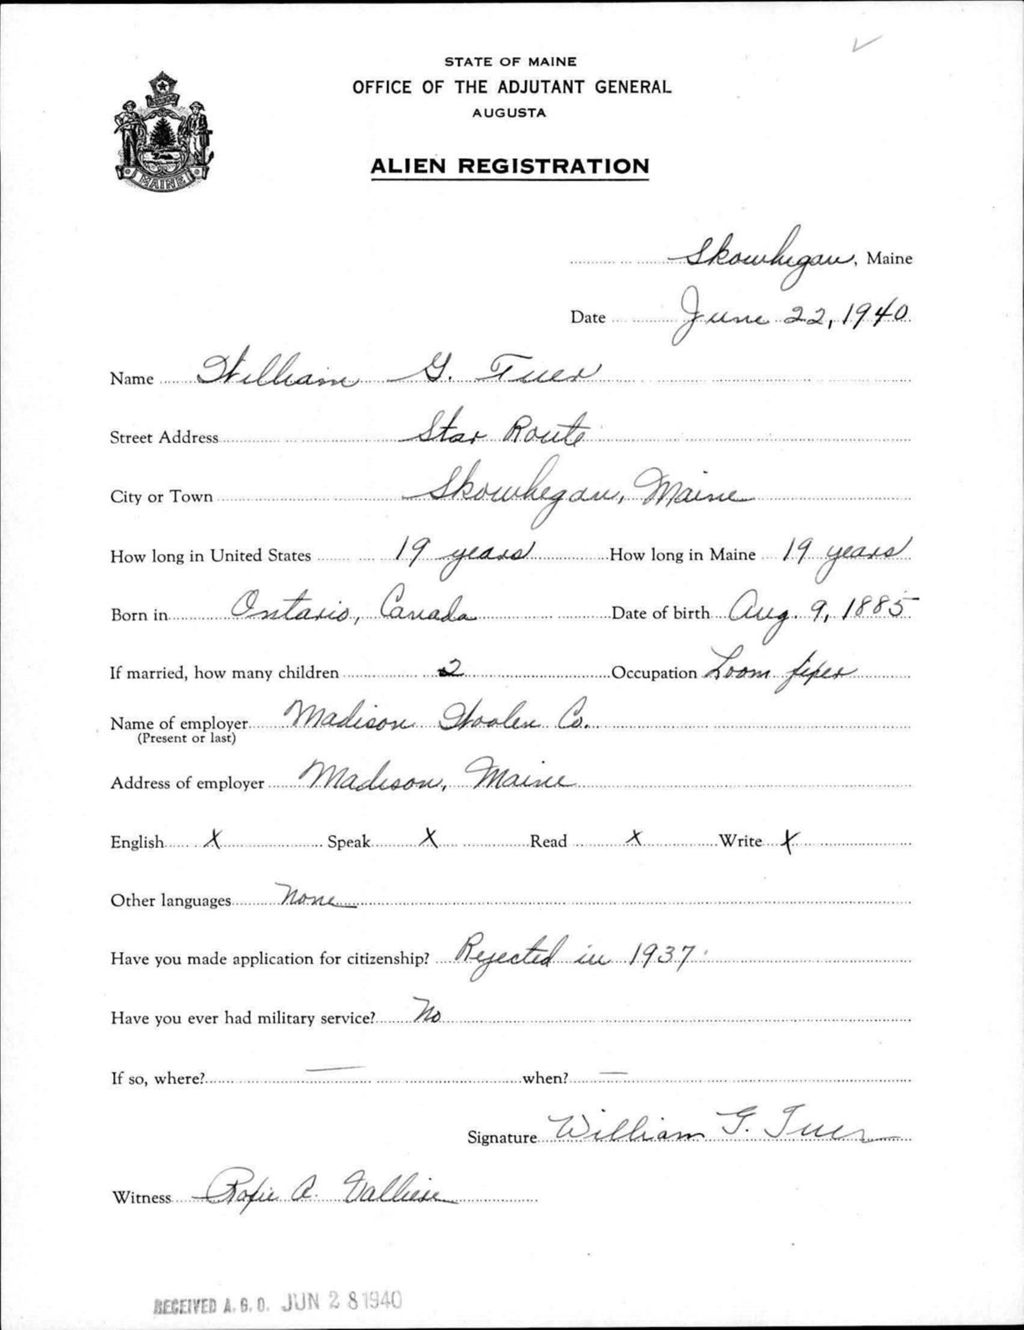 STATE OF MAINE
OFFICE OF THE ADJUTANT GENERAL
AUGUSTA
ALIEN REGISTRATION
MAINE
Skowhegan, Maine
Date June 22, 1940
Name William G. Tuer
Street Address Star Route
City or Town Skowhegan, Maine
How long in United States 19 years How long in Maine 19 years
Born in Ontario, Canada Date of birth Aug. 9, 1885
If married, how many children 2 Occupation Loom fixer
Name of employer Madison Woolen Co.
(Present or last)
Address of employer Madison, Maine
English X Speak X Read X Write X
Other languages None
Have you made application for citizenship? Rejected in 1937
Have you ever had military service? No
If so, where? — when? —
Signature William G. Tuer
Witness A.
RECEIVED A. G. O. JUN 28 1940